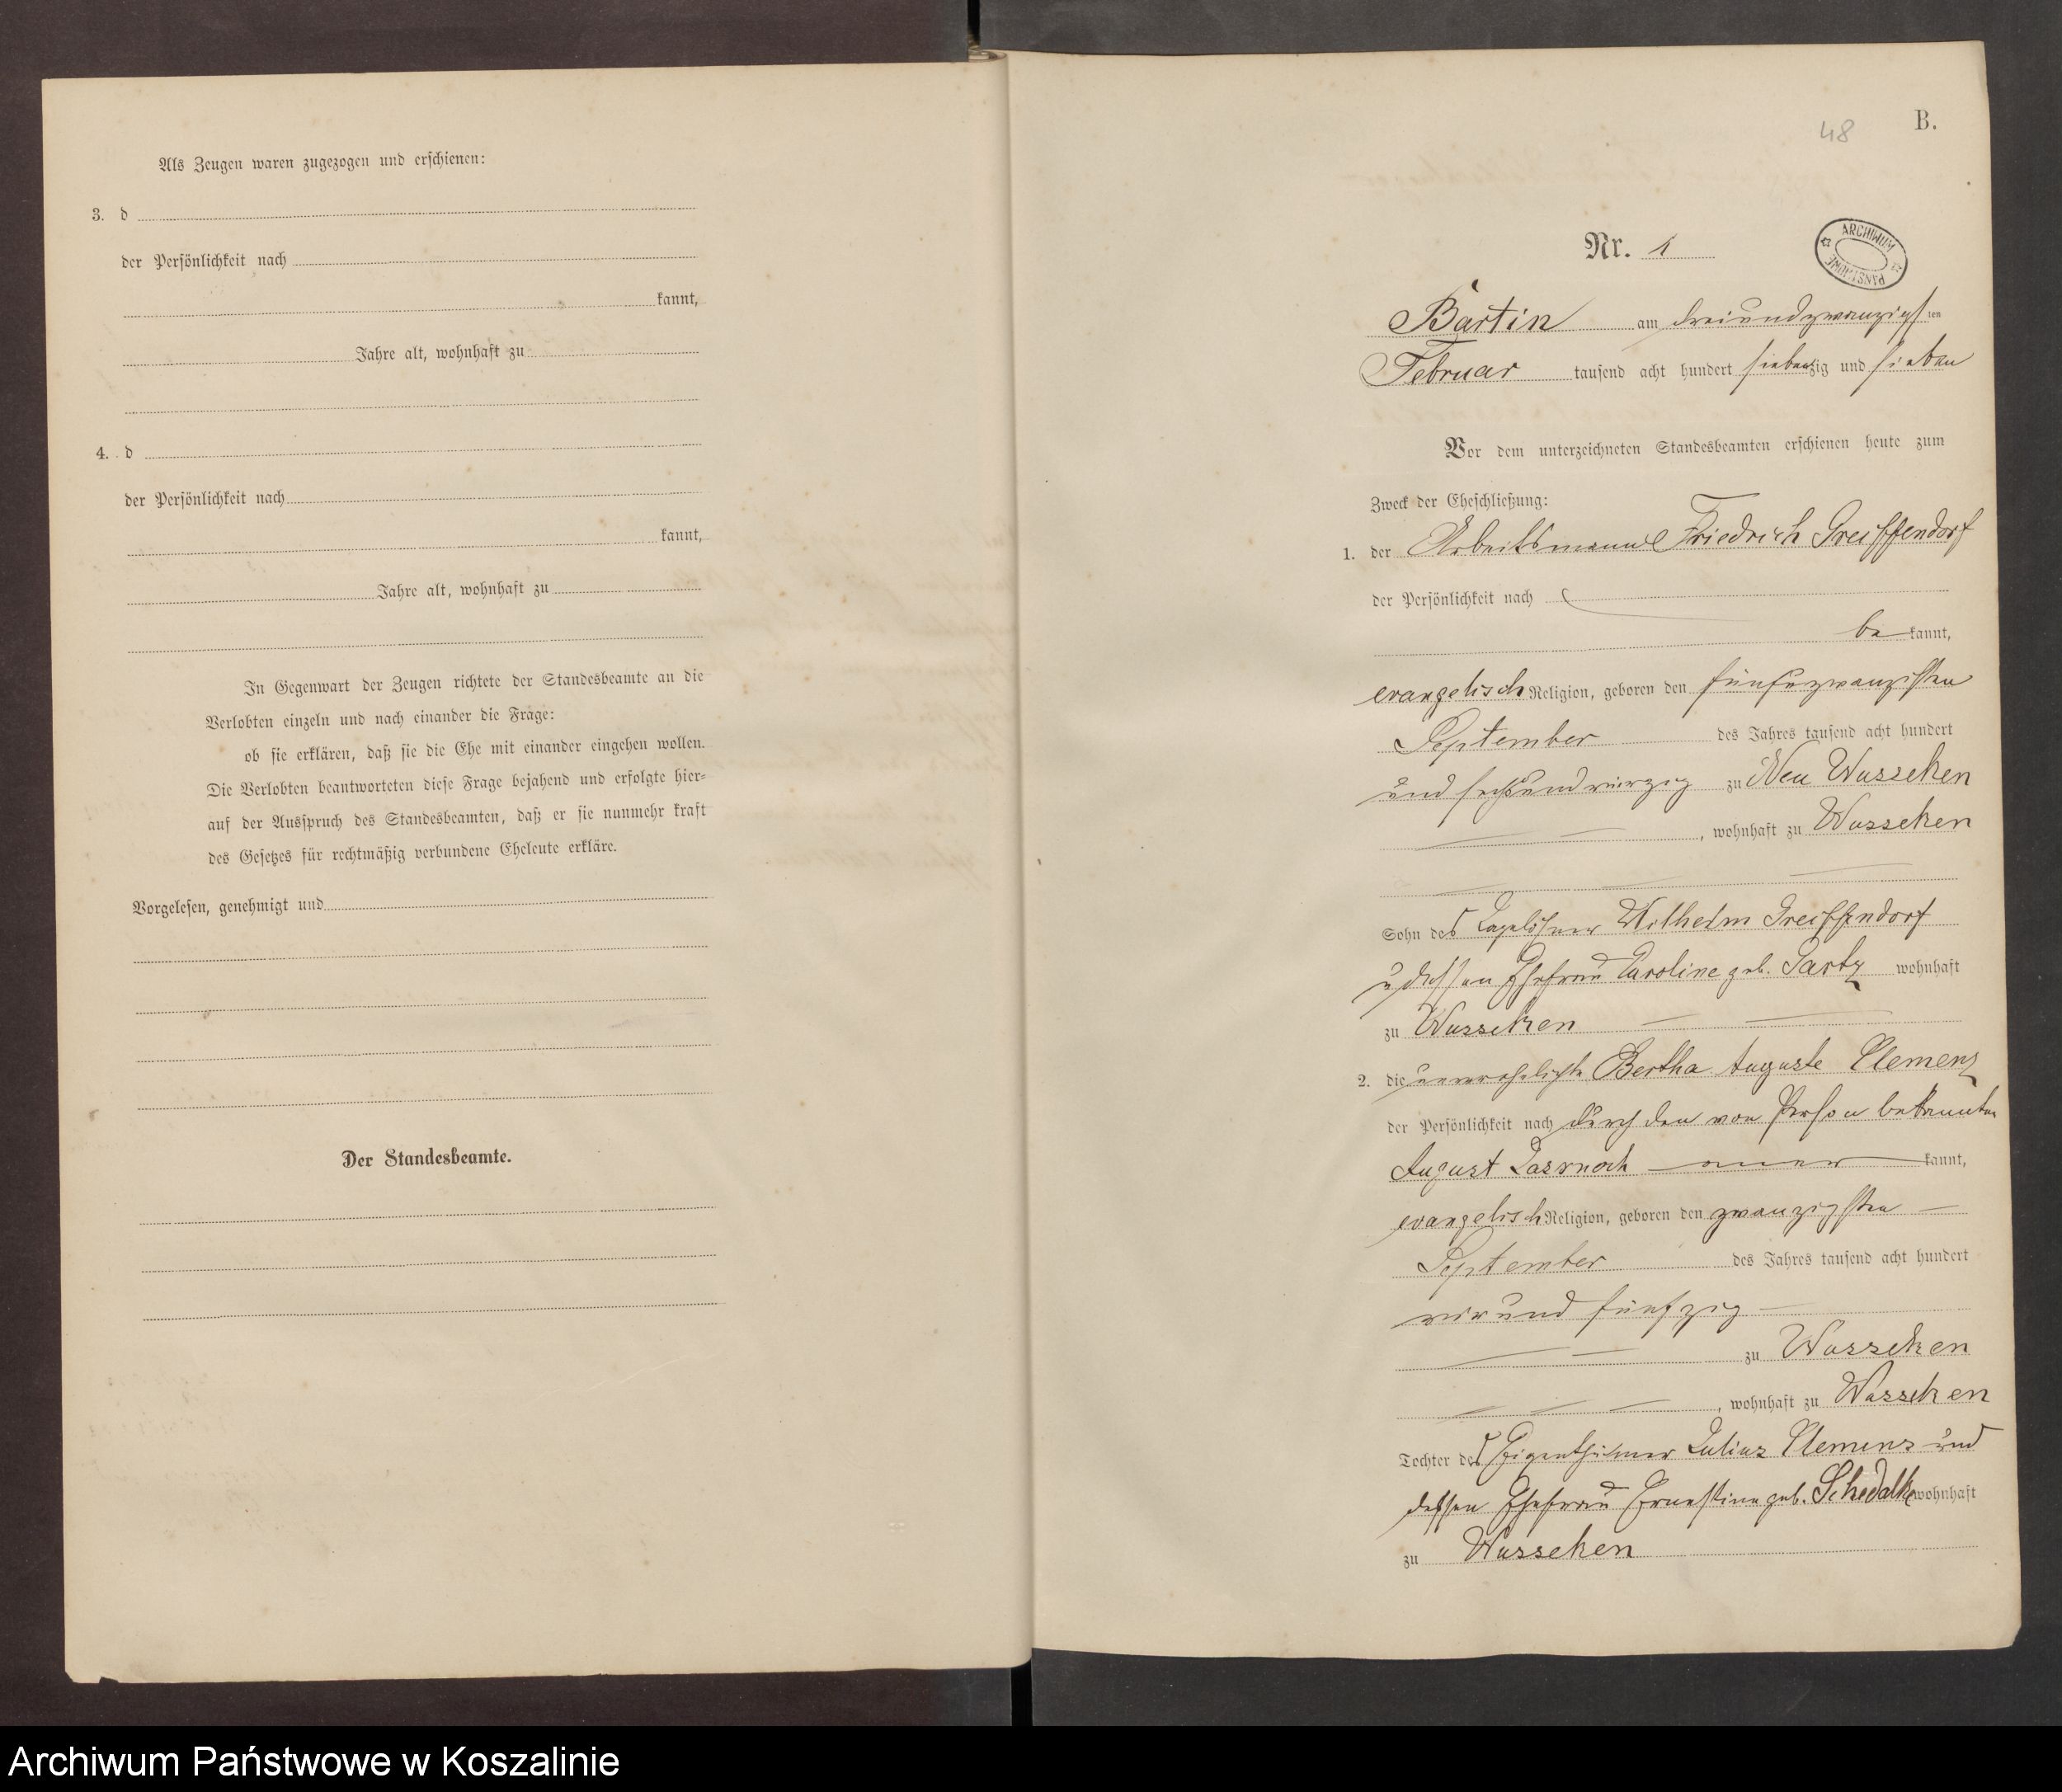 Als Zeugen waren zugezogen und erschienen:
3. d
der Persönlichkeit nach
kannt,
Jahre alt, wohnhaft zu
4. d
der Persönlichkeit nach
kannt,
Jahre alt, wohnhaft zu
In Gegenwart der Zeugen richtete der Standesbeamte an die
Verlobten einzeln und nach einander die Frage:
ob sie erklären, daß sie die Ehe mit einander eingehen wollen.
Die Verlobten beantworteten diese Frage bejahend und erfolgte hier-
auf der Ausspruch des Standesbeamten, daß er sie nunmehr kraft
des Gesetzes für rechtmäßig verbundene Eheleute erkläre.
Vorgelesen, genehmigt und
Der Standesbeamte.
48 B.
Nr. 1
ARCHIWUM PAŃSTWOWE
Bartin am dreiundzwanzigsten
Februar tausend acht hundert siebenzig und sieben
Vor dem unterzeichneten Standesbeamten erschienen heute zum
Zweck der Eheschließung:
1. der Arbeitsmann Friedrich Greiffendorf
der Persönlichkeit nach
bekannt,
evangelisch Religion, geboren den
September des Jahres tausend acht hundert
und sechsundvierzig zu Neu Wusseken
, wohnhaft zu Wusseken
Sohn des Tagelöhner Wilhelm Greiffendorf
u dessen Ehefrau Caroline geb. wohnhaft
zu Wusseken
2. die unverehelichte Bertha Auguste Clemenz
der Persönlichkeit nach durch den von Person bekannten
August kannt,
evangelisch Religion, geboren den zwanzigsten
September des Jahres tausend acht hundert
vier und fünfzig
zu Wusseken
, wohnhaft zu Wusseken
Tochter des Eigenthümer Julius Clemenz und
dessen Ehefrau Ernestine geb. Schedalke wohnhaft
zu Wusseken
Archiwum Państwowe w Koszalinie